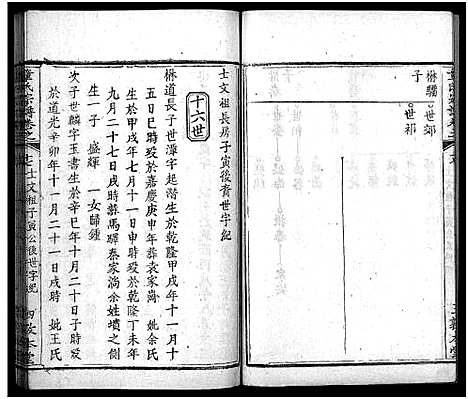 楙驕
子
世郊
世祁
士文祖長房子寅後裔世字紀
十六世
楙道長子世漳字起潛生於乾隆甲戌年十一月十
五日巳時歿於嘉慶庚申年葬袁家崗 妣余氏
生於甲戌年七月十一日申時歿於乾隆丁未年
九月二十七日戌時葬馬驛秦家淌余姓墳之側
生一子 盛輝 一女歸鍾
次子世麟字玉書生於辛巳年十月二十日子時歿
於道光辛卯年十一月二十一日戌時 妣王氏
童氏宗譜卷之
士文祖子寅公後世字紀
四教本堂